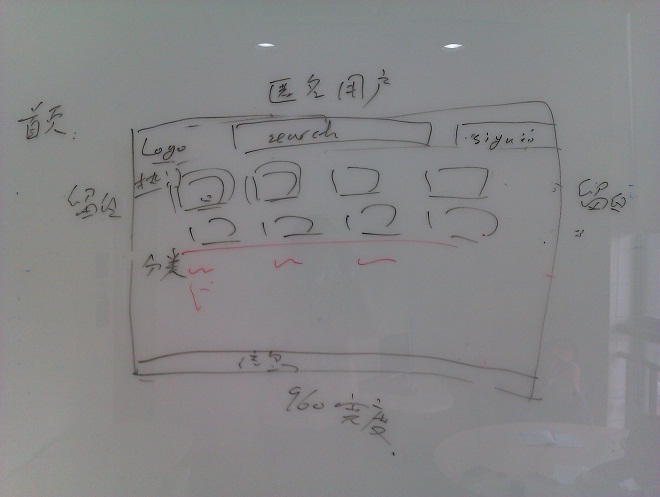 匿名用户
首页:
Logo
search
signin
留白
留白
分类
信息
960 宽度